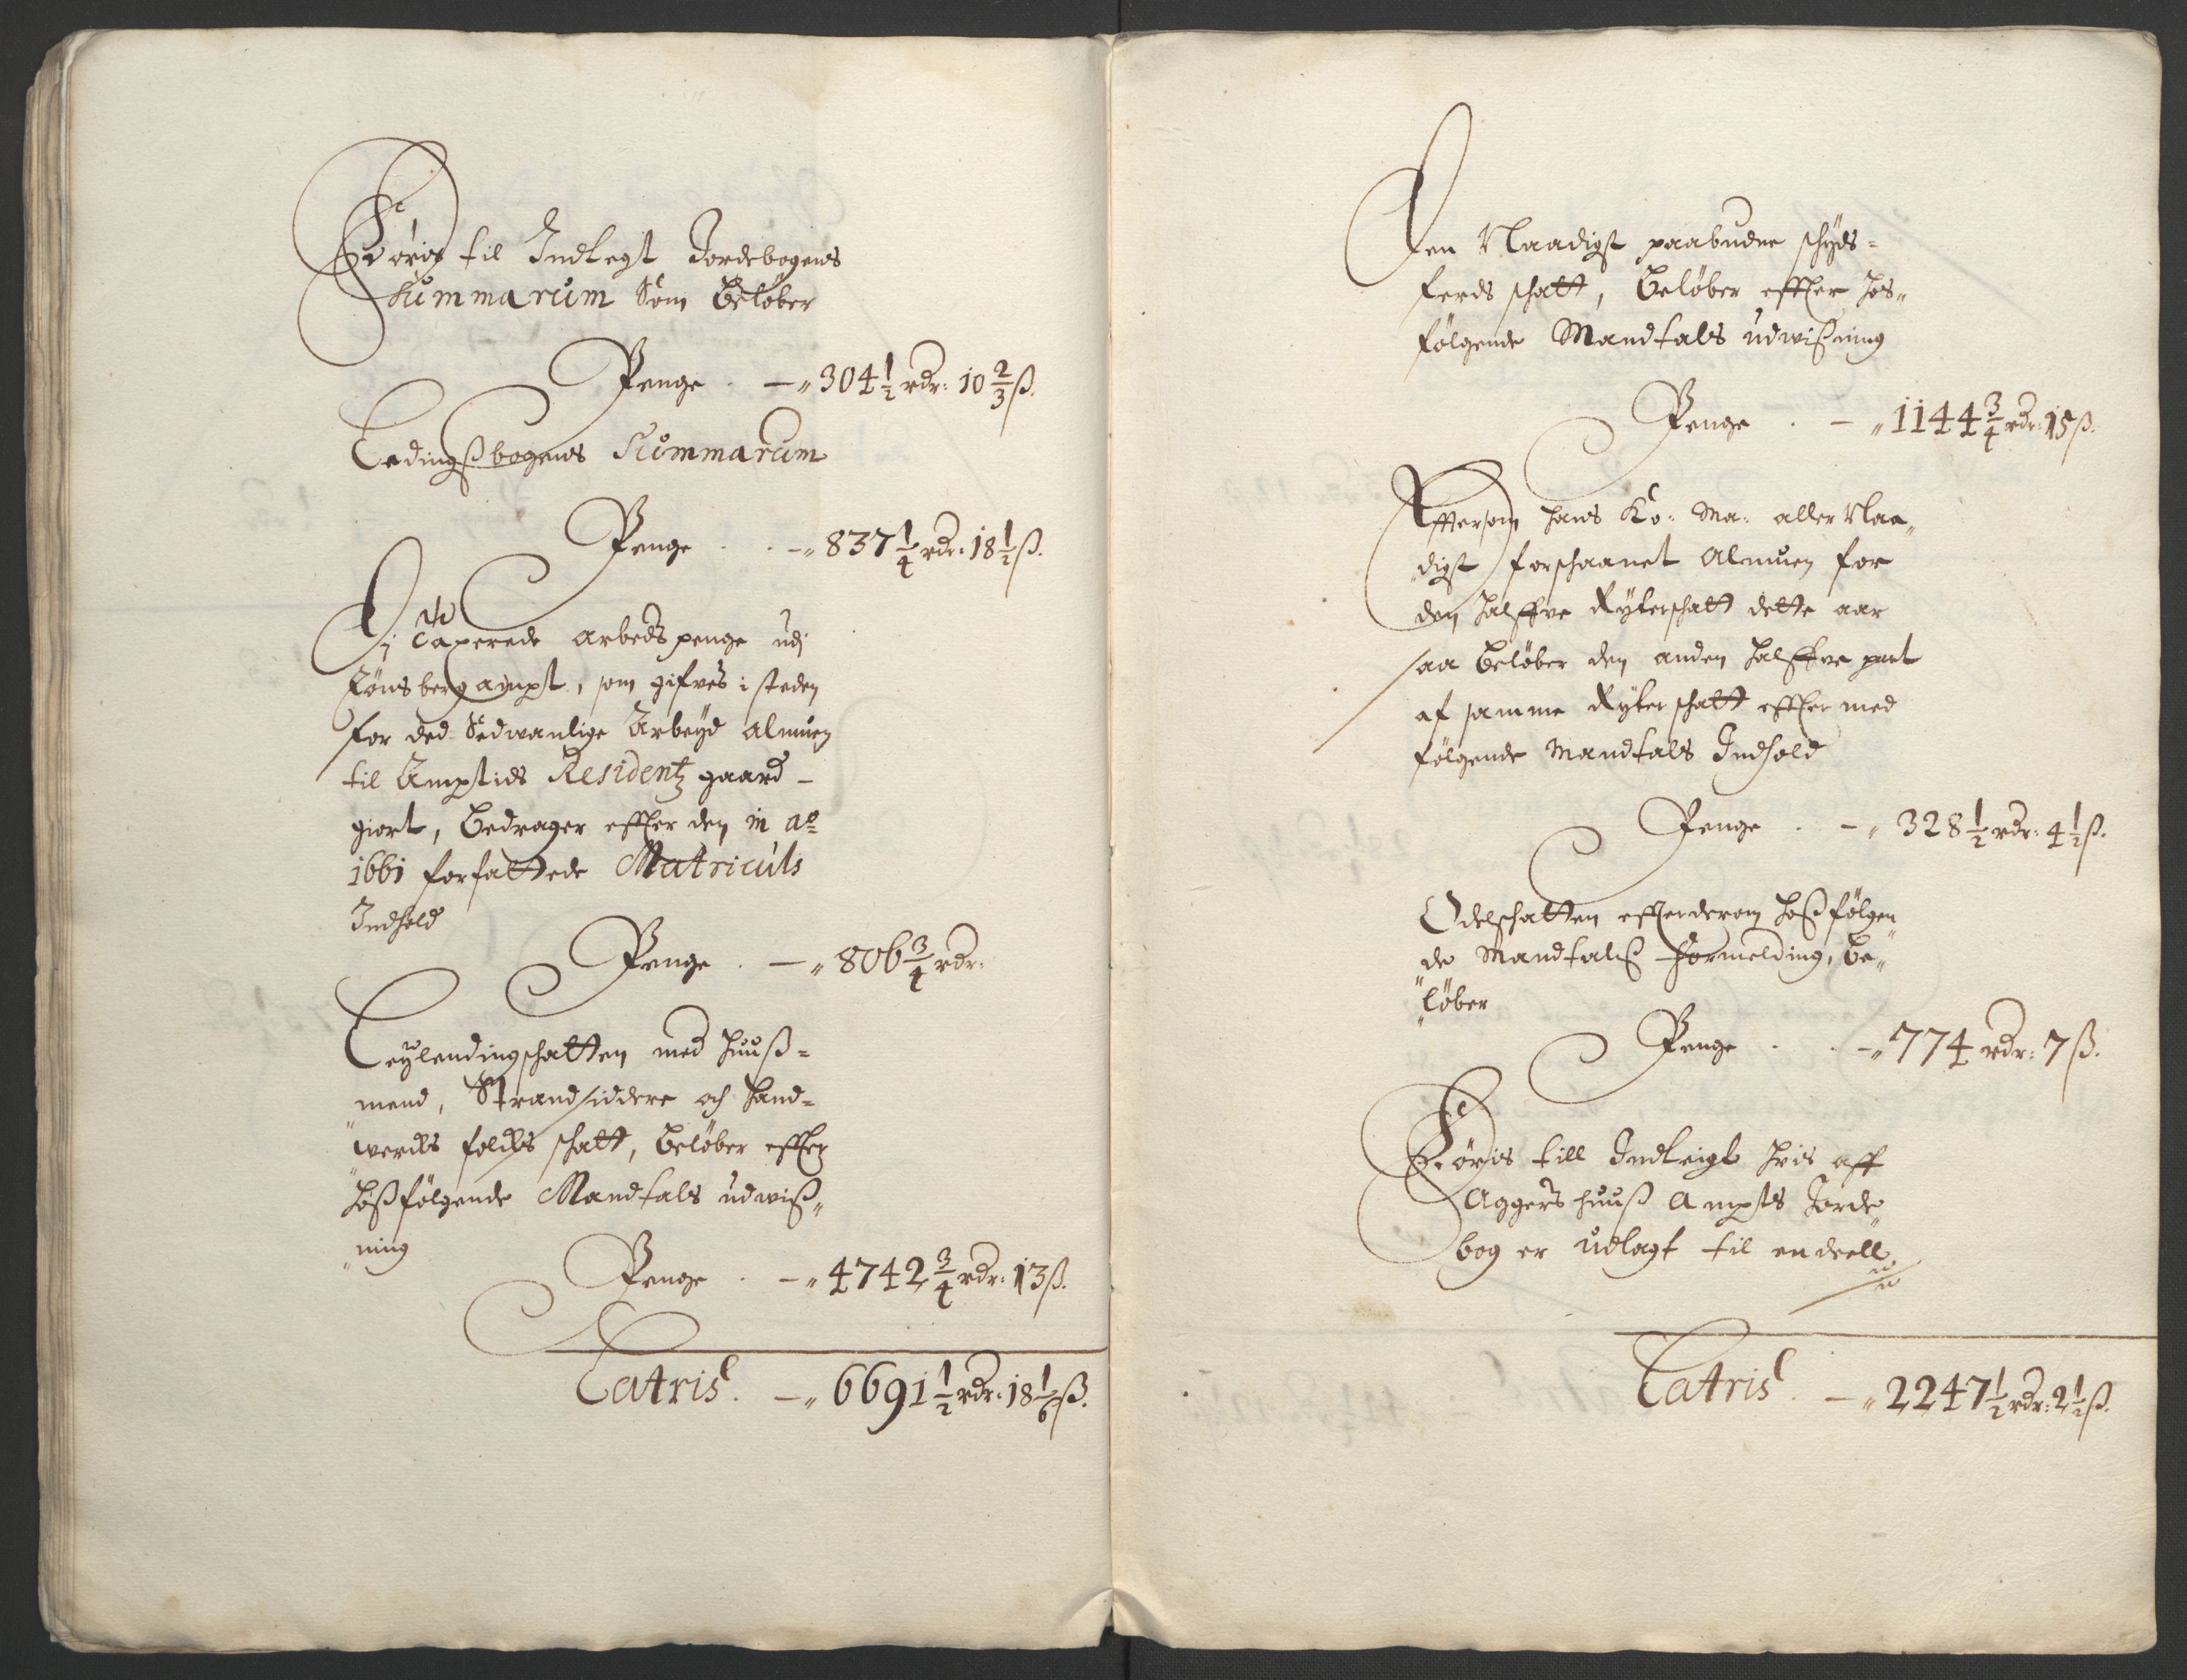 Føris til Indtegt Jordebogens
Summarum Som Beløber
Penge . — „ 304 1/2 rdr: 10 2/3 ß.
Ledingsbogens Summarum
Penge . . — „ 837 1/4 rdr: 18 1/2 ß.
Di Taxerede Arbeds penge udj
Tønsberg ampt, som gifves i steden
for ded Sedwanlige Arbeyd Almuen
til Amptids Residentz gaard –
giort, Bedrager effter den in Ao
1661 forfattede Matriculs
Indhold
Penge . — „ 806 3/4 rdr:
Leylendingschatten med Huuß=
mend, Strandsiddere och Hand=
wercks folckis schatt, Beløber effter
hoßfølgende Mandtals udwiß„
„ning
Penge . — „ 4742 3/4 rdr: 13 ß.
Latris. — „ 6691 1/2 rdr: 18 1/6 ß.
Den Naadigst paabudne schyds=
ferds schatt, Beløber effter hos„
følgende Mandtals udwißning
Penge . — „ 1144 3/4 rdr: 15 ß.
Effttersom Hans Ko: Ma: aller Naa„
„digst forschaanet Almuen for
den halffve Rytterschatt dette aar
saa Beløber den anden halffve part
af samme Rytterschatt effter med
følgende Mandtals Indhold
Penge . — „ 328 1/2 rdr: 4 1/2 ß.
Odelschatten effter derom hoßfølgen„
„de Mandtalß formelding, be„
„løber
Penge . . — „ 774 rdr: 7 ß.
Føris till Indteigt hvis aff
Aggers huuß Ampts Jorde„
bog er udlagt til en deell
Latris. — „ 2247 1/2 rdr: 2 1/2 ß.